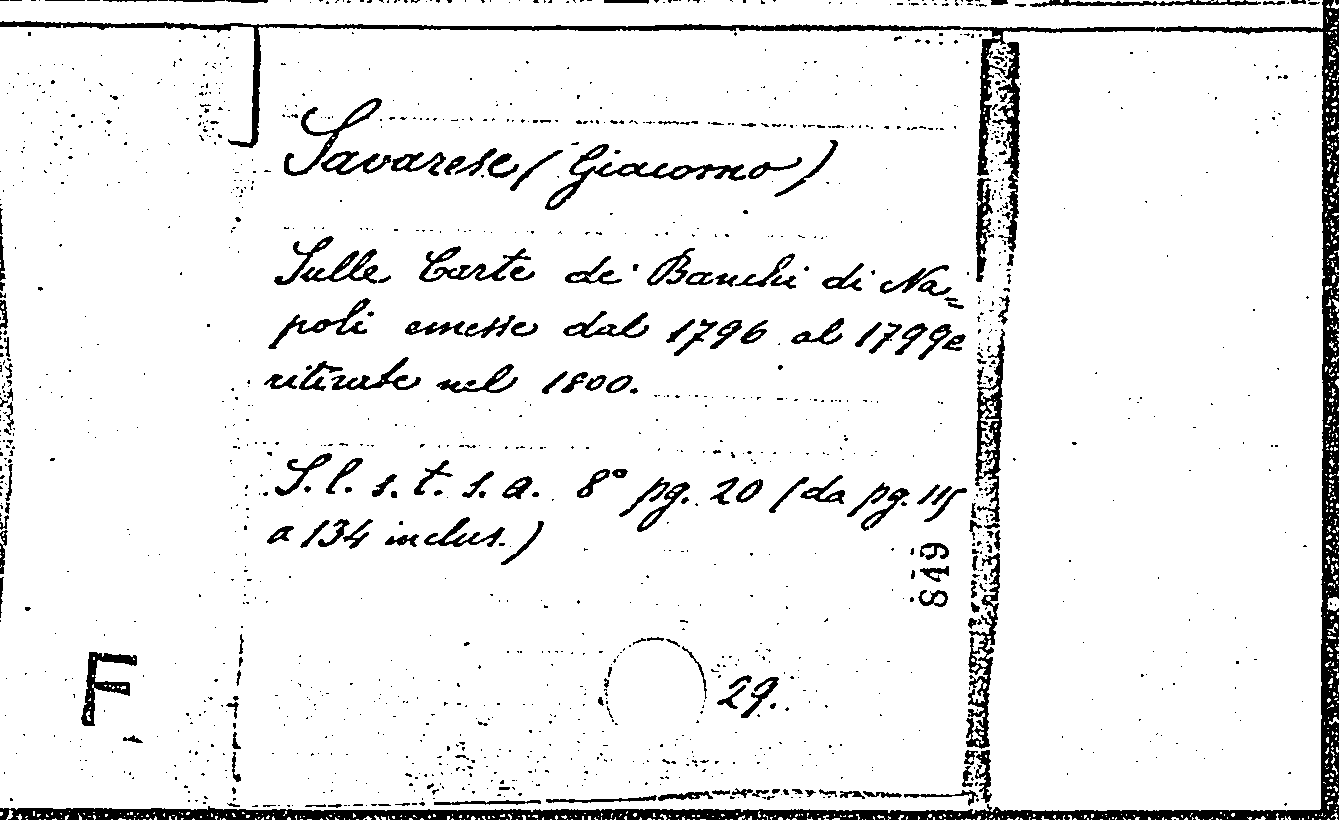 Savarese (Giacomo)
Sulle Carte de' Banchi di Na=
poli emesse dal 1796 al 1799 e
ritirate nel 1800.
S. l. s. t. s. a. 8° pg. 20 (da pg. 115
a 134 inclus.)
849
29.
F